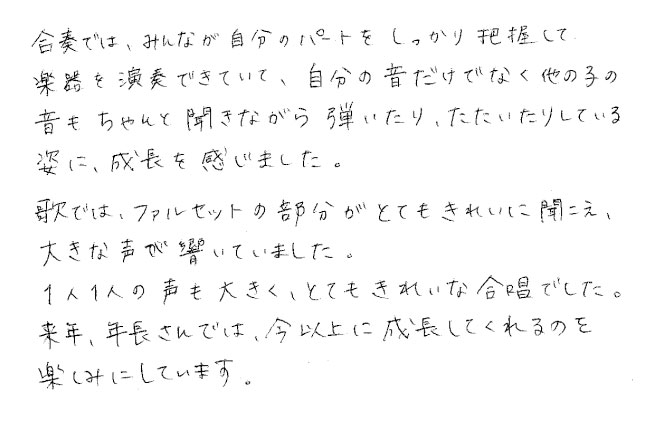 合奏では、みんなが自分のパートをしっかり把握して
楽器を演奏できていて、自分の音だけでなく他の子の
音もちゃんと聞きながら弾いたり、たたいたりしている
姿に、成長を感じました。
歌では、ファルセットの部分がとてもきれいに聞こえ、
大きな声が響いていました。
1人1人の声も大きく、とてもきれいな合唱でした。
来年、年長さんでは、今以上に成長してくれるのを
楽しみにしています。